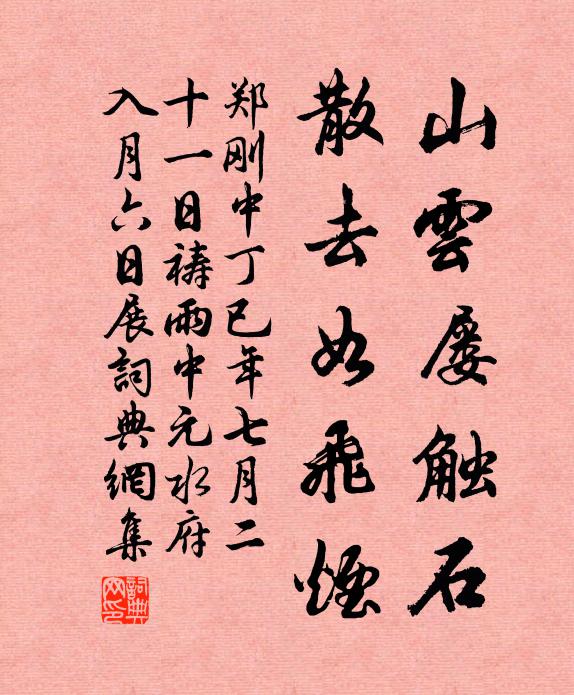 山雲屡触石
散去如飛煙
郑刚中丁巳年七月二
十一日祷雨中元水府
入月六日展詞典網集
詞典网印